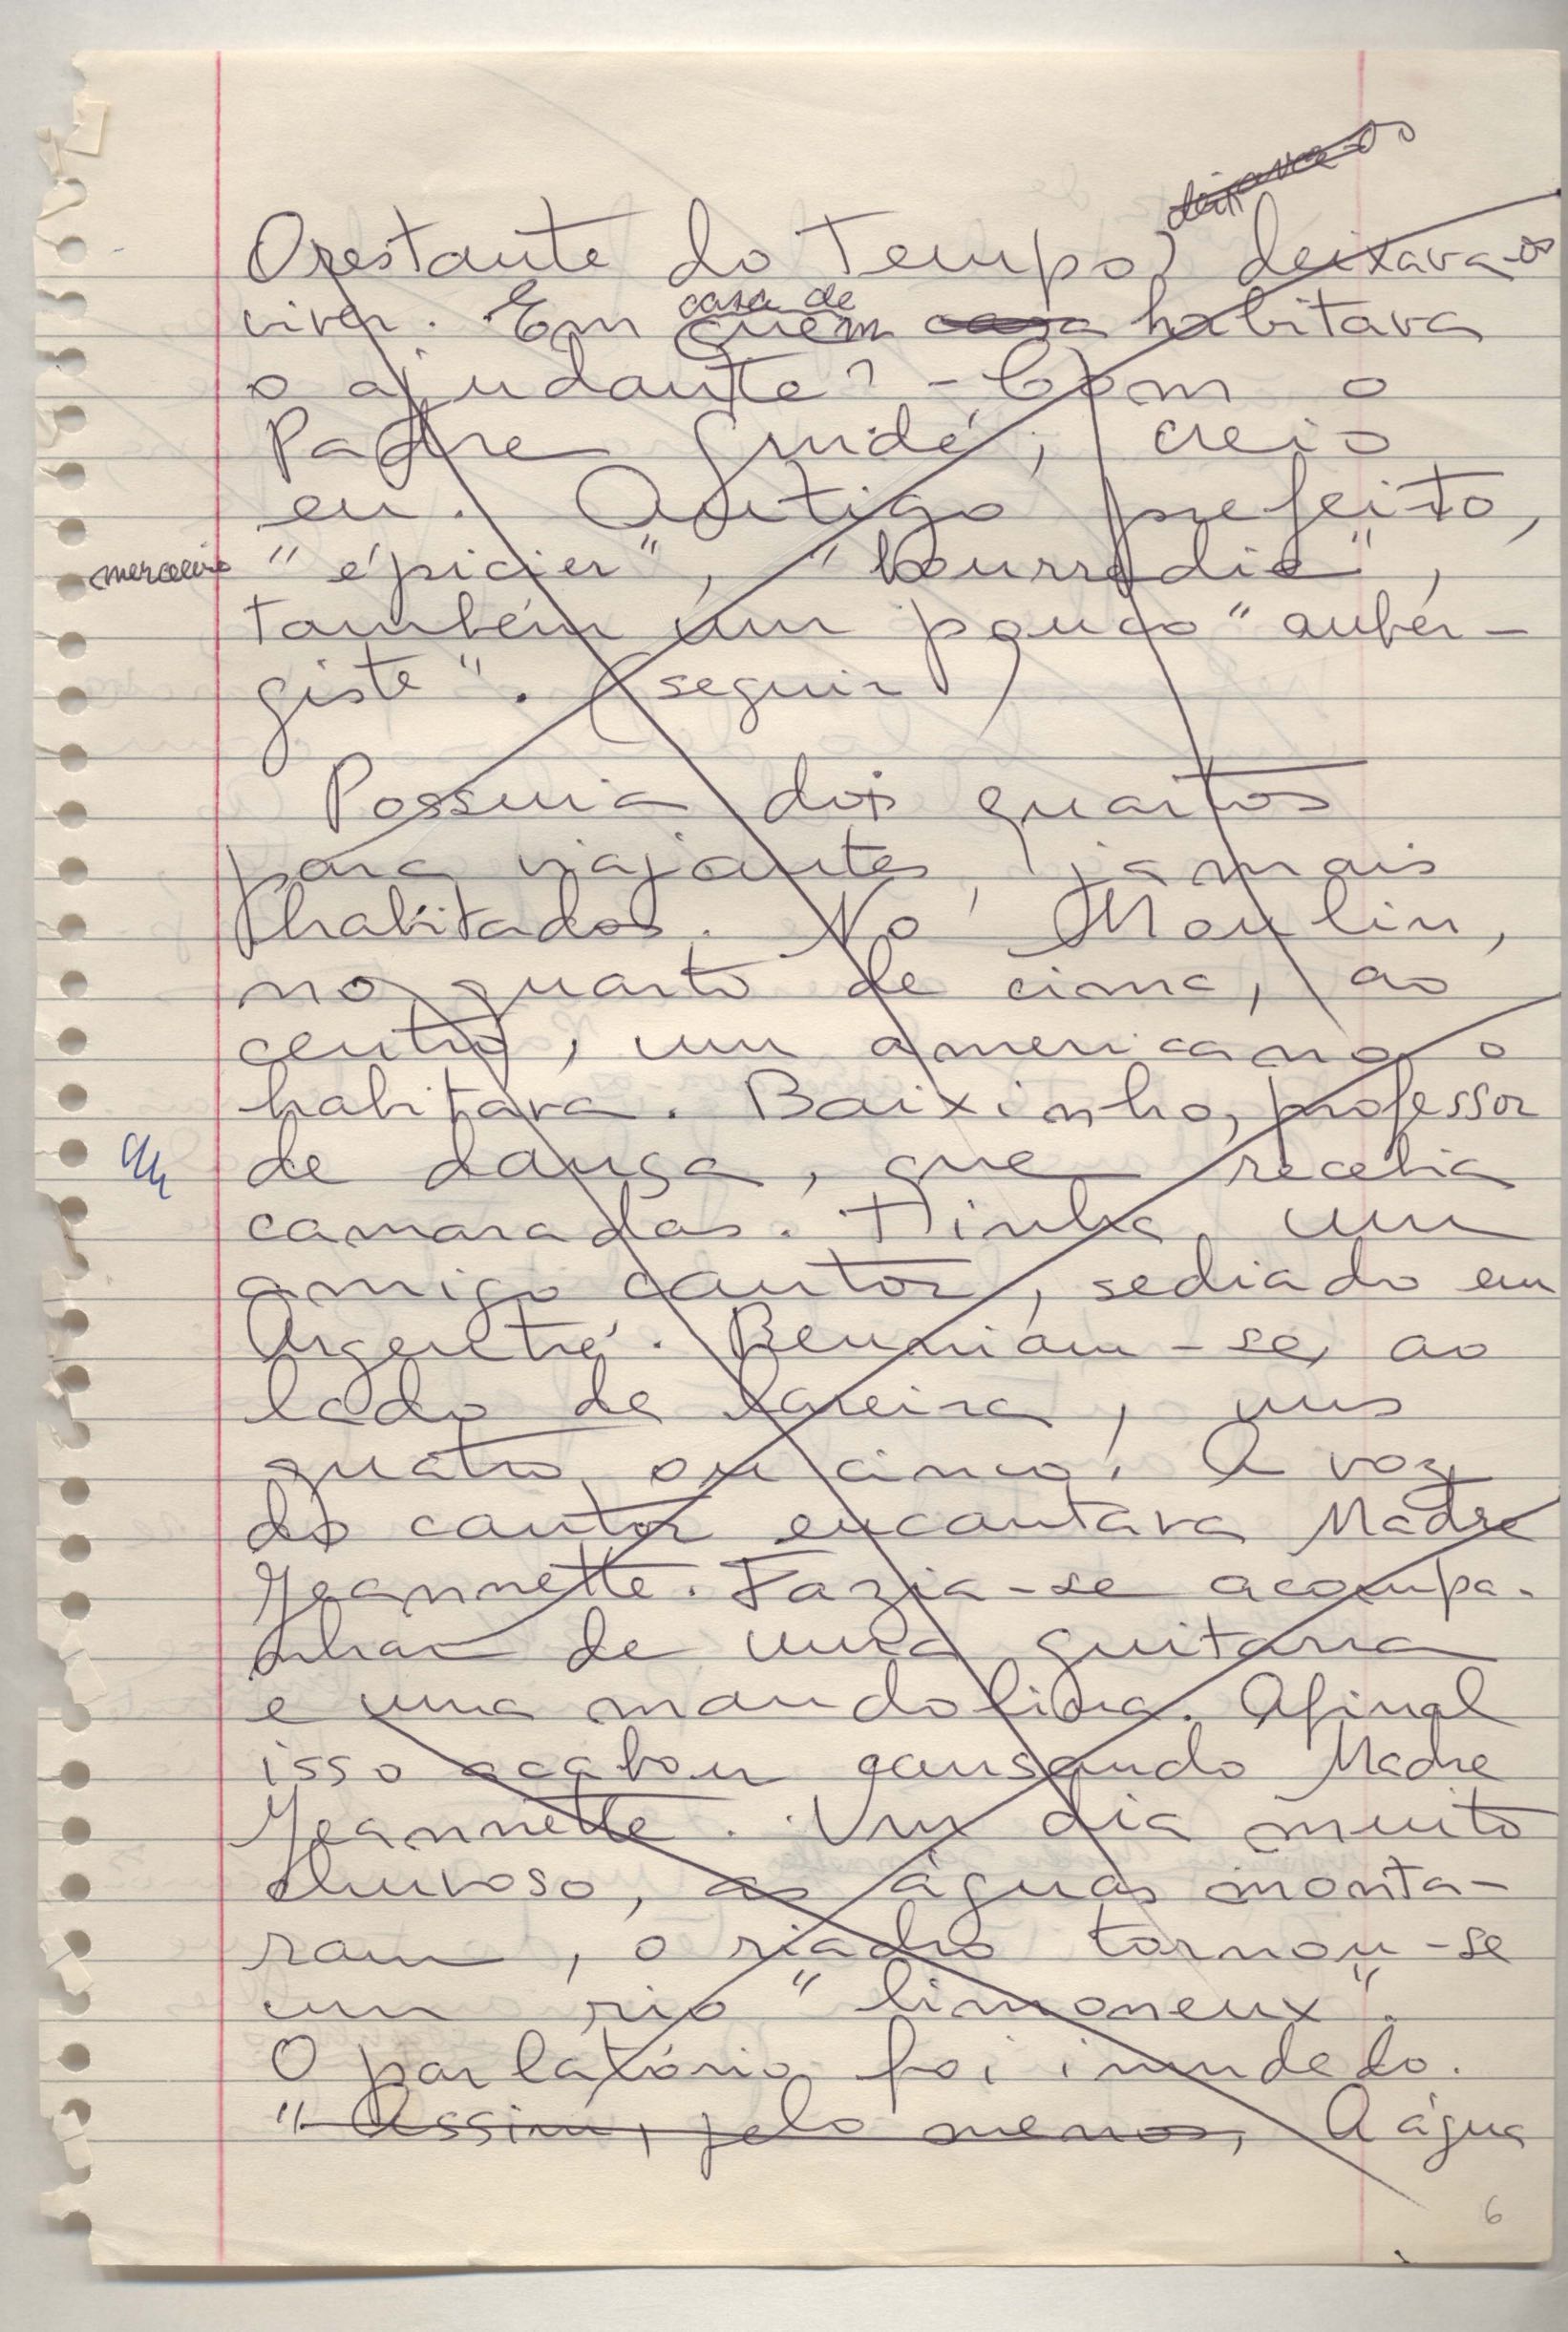 deixava-os
O restante do tempo, deixava-os
viver. Em casa de quem casa habitava
o ajudante? - Com o
Padre Guidé, creio
eu. Antigo prefeito,
merceeiro "épicier", "bourradie",
também um pouco "auber-
giste". (seguir)
Possuia dois quartos
para viajantes, jamais
habitados. No Moulin,
no quarto de cima, ao
centro, um americano o
habitava. Baixinho, professor
de dança, que recebia
camaradas. Tinha um
amigo cantor, sediado em
Argentré. Reuniam-se, ao
lado da lareira, uns
quatro ou cinco. A voz
do cantor encantava Madre
Jeannette. Fazia-se acompa-
nhar de uma guitarra
e uma mandolina. Afinal
isso acabou cansando Madre
Jeannette. Um dia muito
chuvoso, as águas monta-
ram, o riacho tornou-se
um rio "limoneux".
O parlatório foi inundado.
"Assim, pelo menos, A água
6